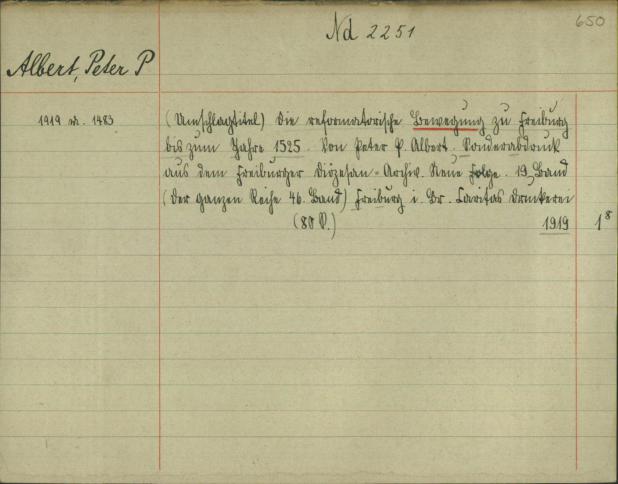 Nd 2251
650
Albert, Peter P
1919 n. 1483
(Umschlagtitel) Die reformatorische Bewegung zu Freiburg
bis zum Jahre 1525. Von Peter P. Albert. Sonderabdruck
aus dem Freiburger Diözesan-Archiv. Neue Folge. 19. Band
(Der ganzen Reihe 46. Band) Freiburg i. Br. Caritas Druckerei
(80 S.) 1919 1 8